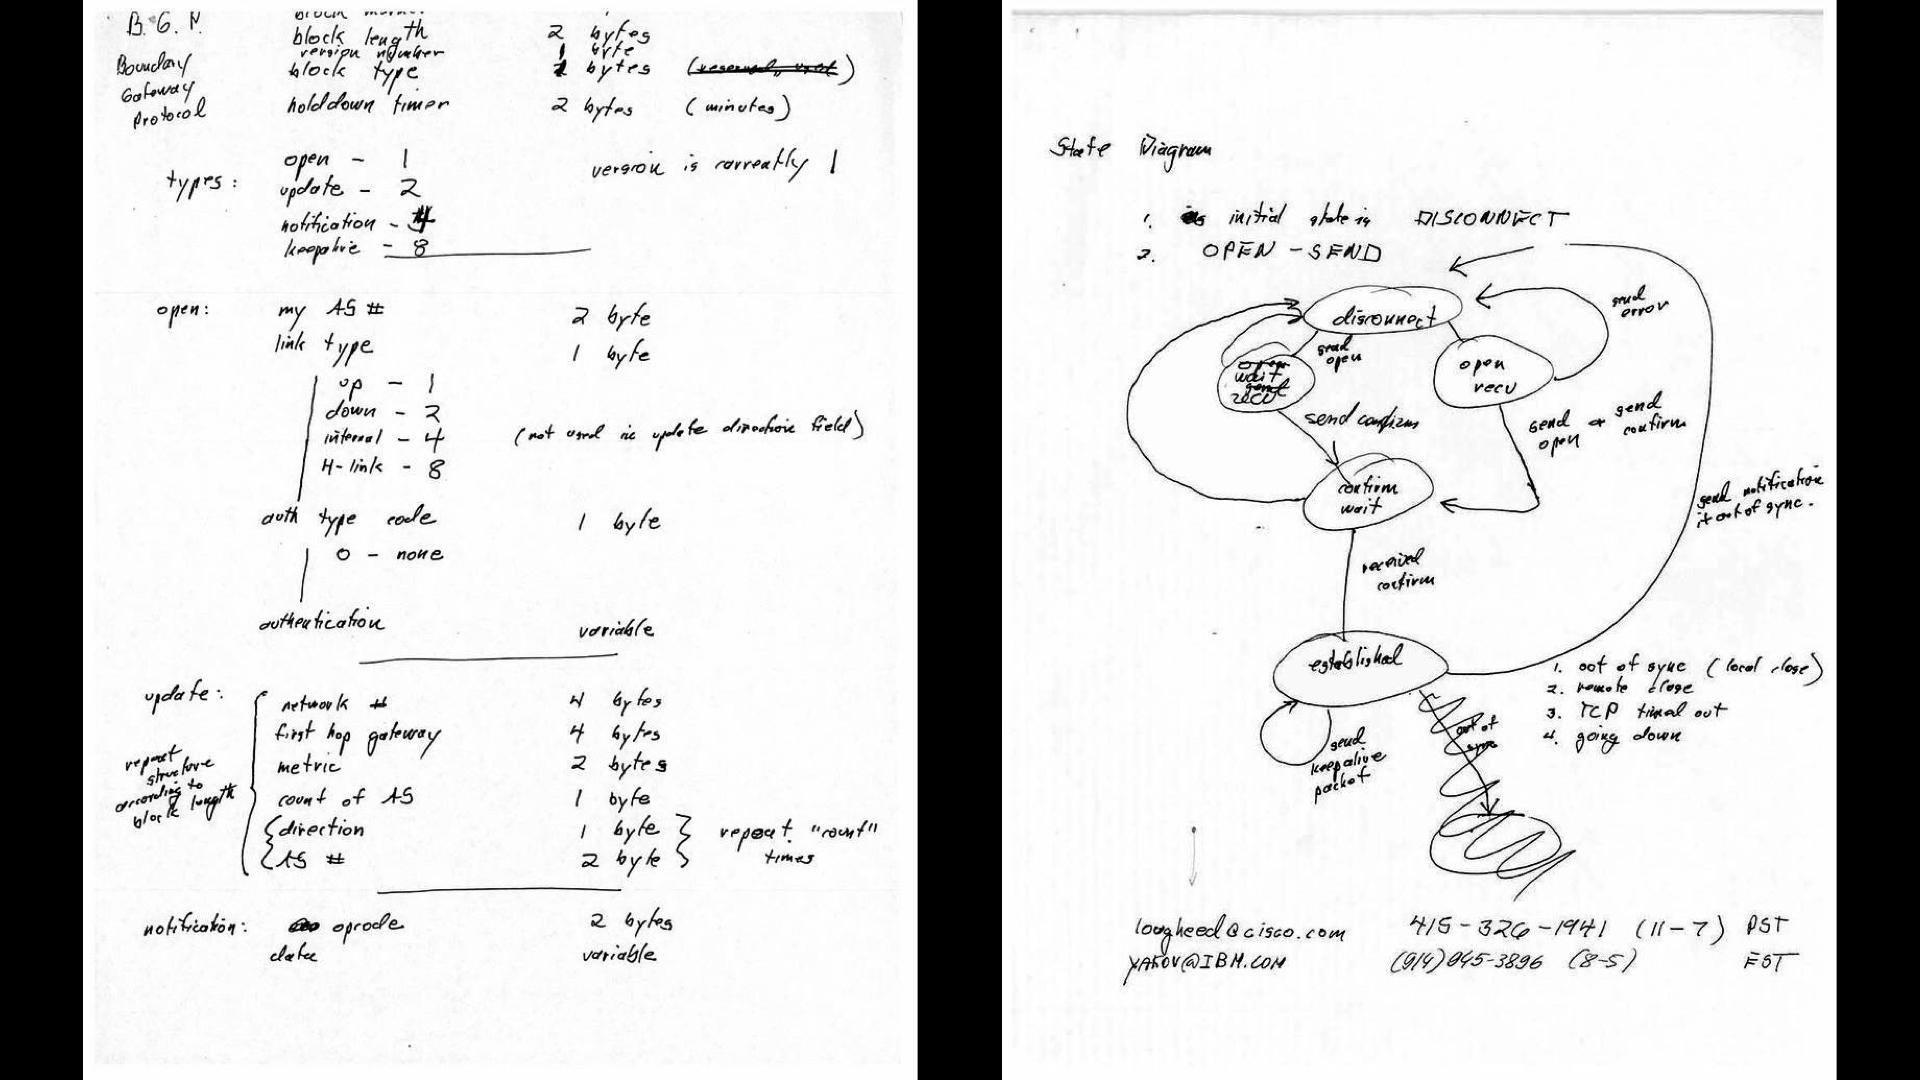 B.G.P.
Boundary
Gateway
Protocol
block length 2 bytes
version number 1 byte
block type 1 bytes
holddown timer 2 bytes (minutes)
types:
open - 1
update - 2
notification - 4
keepalive - 8
version is currently 1
open:
my AS # 2 byte
link type 1 byte
up - 1
down - 2
internal - 4 (not used in update direction field)
H-link - 8
auth type code 1 byte
0 - none
authentication variable
update:
network # 4 bytes
first hop gateway 4 bytes
metric 2 bytes
count of AS 1 byte
direction 1 byte
AS # 2 byte
repeat "count"
times
repeat
structure
according to
block length
notification: opcode 2 bytes
data variable
State Diagram
1. initial state is DISCONNECT
2. OPEN - SEND
disconnect
send
error
send
open
open
wait
send
recv
open
recv
send confirm
send
open
or send
confirm
confirm
wait
send notification
if out of sync.
received
confirm
established
1. out of sync (local close)
2. remote close
3. TCP timed out
4. going down
send
keepalive
packet
out of
sync
lougheed@cisco.com 415-326-1941 (11-7) PST
YAKOV@IBM.COM (914)945-3896 (8-5) EST